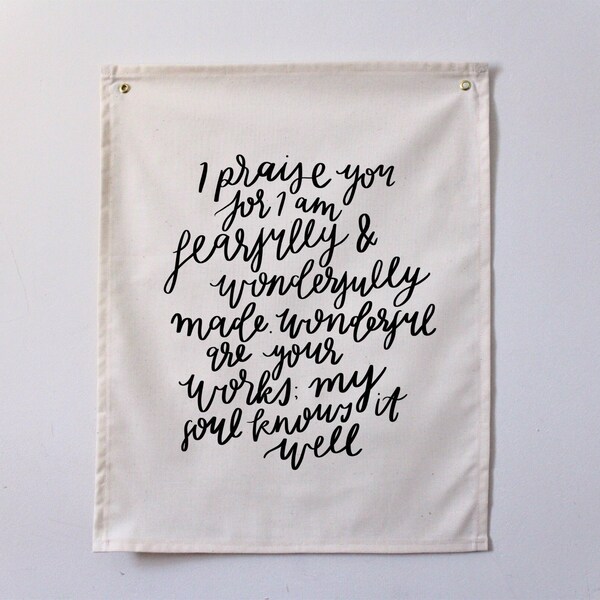 I praise you
for I am
fearfully &
wonderfully
made. wonderful
are your
works; my
soul knows it
well